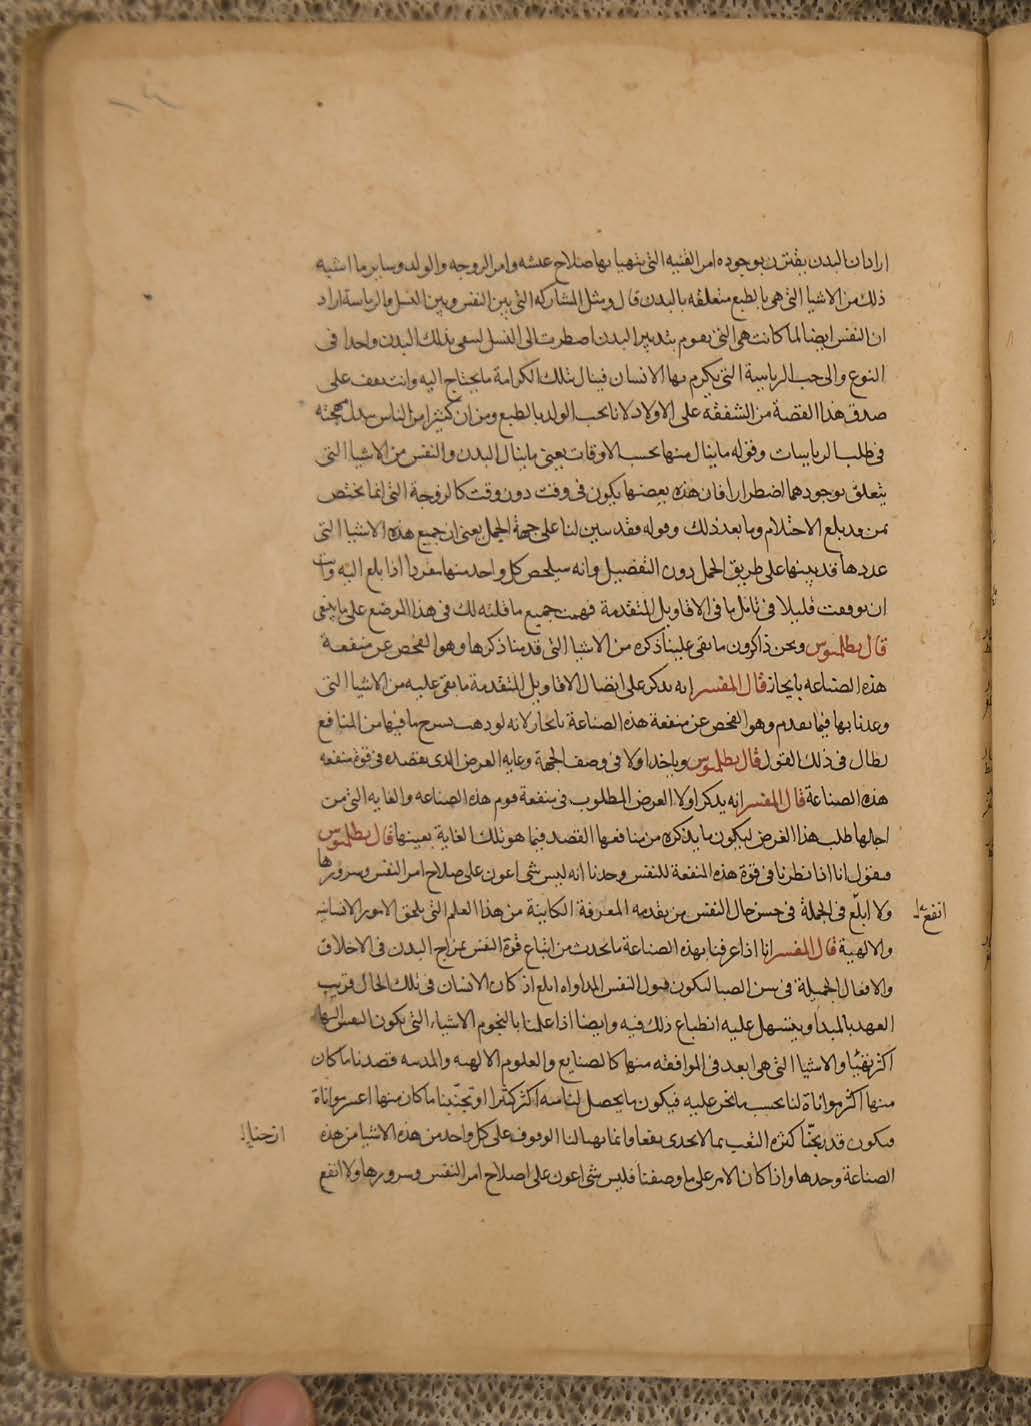 اراد ان البدن يقترن بوجوده امر القنيه التى يتهيا بها صلاح عيشه وامر الزوجه والولد وساير ما اشبه
ذلك من الاشيا التى هى بالطبع متعلقه بالبدن قال ومثل المشاركه التى بين النفس وبين النسل والرياسة اراد
ان النفس ايضا لما كانت هى التى تقوم بتدبير البدن اضطرت الى النسل ليبقى بذلك البدن واحدا فى
النوع والى حب الرياسة التى يكرم بها الانسان فينال بتلك الكرامة ما يحتاج اليه وانت تقف على
صدق هذا القصة من الشفقه على الاولاد لانا نحب الولد بالطبع ومن ان كثيرا من الناس يبذل مهجته
فى طلب الرياسات وقوله ما ينال منها بحسب الاوقات يعنى ما ينال البدن والنفس من الاشيا التى
يتعلق بوجودهما اضطرارا فان هذه بعضها يكون فى وقت دون وقت كالزوجة التى انما تختص
بمن قد بلغ الاحتلام وما بعد ذلك وقوله فقد تبين لنا على جهة الجمل يعنى ان جميع هذه الاشيا التى
عددها قد بينها على طريق الجمل دون التفصيل وانه سيلخص كل واحد منها مفردا اذا بلغ اليه وانت
ان توقفت قليلا فى تامل ما فى الاقاويل المتقدمة فهمت جميع ما قلته لك فى هذا الموضع على ما ينبغى
قال بطلميوس ونحن ذاكرون ما بقى علينا ذكره من الاشيا التى قدمنا ذكرها وهو الفحص عن منفعة
هذه الصناعه بايجاز قال المفسر انه يذكر على اتصال الاقاويل المتقدمة ما بقى عليه من الاشيا التى
وعدنا بها فيما تقدم وهو الفحص عن منفعة هذه الصناعة بايجاز لانه لو ذهب يشرح ما فيها من المنافع
لطال فى ذلك القول قال بطلميوس وياخذ اولا فى وصف الجهة وغايه الغرض الذى نقصده فى قوة منفعه
هذه الصناعة قال المفسر انه يذكر اولا الغرض المطلوب فى منفعة قوم هذه الصناعه والغايه التى من
اجلها طلب هذا الغرض ليكون ما يذكره من منافعها القصد فيما هو تلك الغاية بعينها قال بطلميوس
فنقول انا اذا نظرنا فى قوة هذه المنفعة للنفس وجدنا انه ليس شى اعون على صلاح امر النفس وسرورها
ولا ابلغ فى الجملة فى حسن حال النفس من تقدمه المعرفة الكاينة من هذا العلم التى تلحق الامور الانسانيه
انفع
والالهية قال المفسر انا اذا عرفنا بهذه الصناعة ما يحدث من اتباع قوة النفس بمزاج البدن فى الاخلاق
والافعال الجميلة فى سن الصبا ليكون قبول النفس المداواه ابلغ اذ كان الانسان فى تلك الحال قريب
العهد بالمبدا ويتسهل عليه انطباع ذلك فيه وايضا اذا علمنا بالنجوم الاشياء التى يكون النفس اليها
اكثر تهيئا والاشيا التى هى ابعد فى الموافقه منها كالصنايع والعلوم الالهيه والهندسه قصدنا ما كان
منها اكثر مواتاة لنا بحسب ما نحن عليه فيكون ما يحصل لنا منه اكثر كثيرا او تجنبنا ما كان منها اعسر مواتاة
فيكون قد ربحنا كثرة التعب بما لا يجدى نفعا وانما تهيا لنا الوقوف على كل واحد من هذه الاشيا من هذه
ارحنا
الصناعة وحدها واذا كان الامر على ما وصفنا فليس شى اعون على اصلاح امر النفس وسرورها ولا انفع